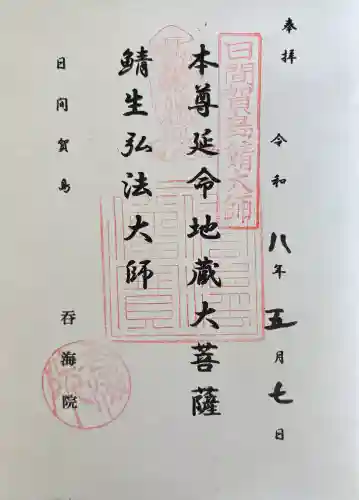 奉拝
令和八年五月七日
日間賀島鯖大師
本尊延命地蔵大菩薩
鯖生弘法大師
日間賀島
呑海院